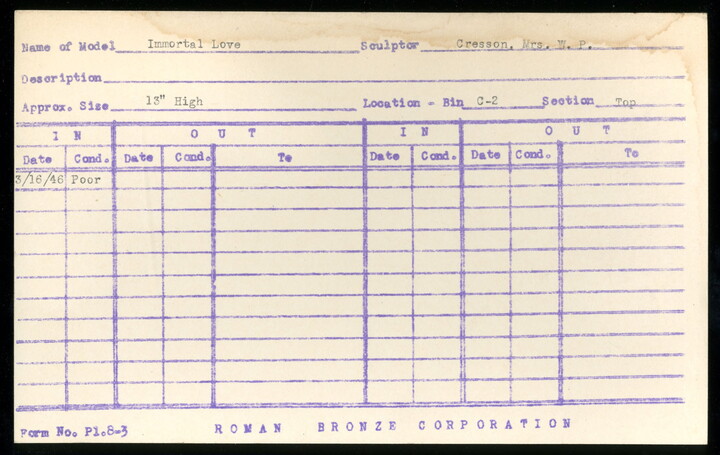 Name of Model Immortal Love Sculptor Cresson, Mrs. W. P.
Description
Approx. Size 13" High Location - Bin C-2 Section Top
I N O U T I N O U T
Date Cond. Date Cond. To Date Cond. Date Cond. To
3/16/46 Poor
Form No. P1.8-3 ROMAN BRONZE CORPORATION